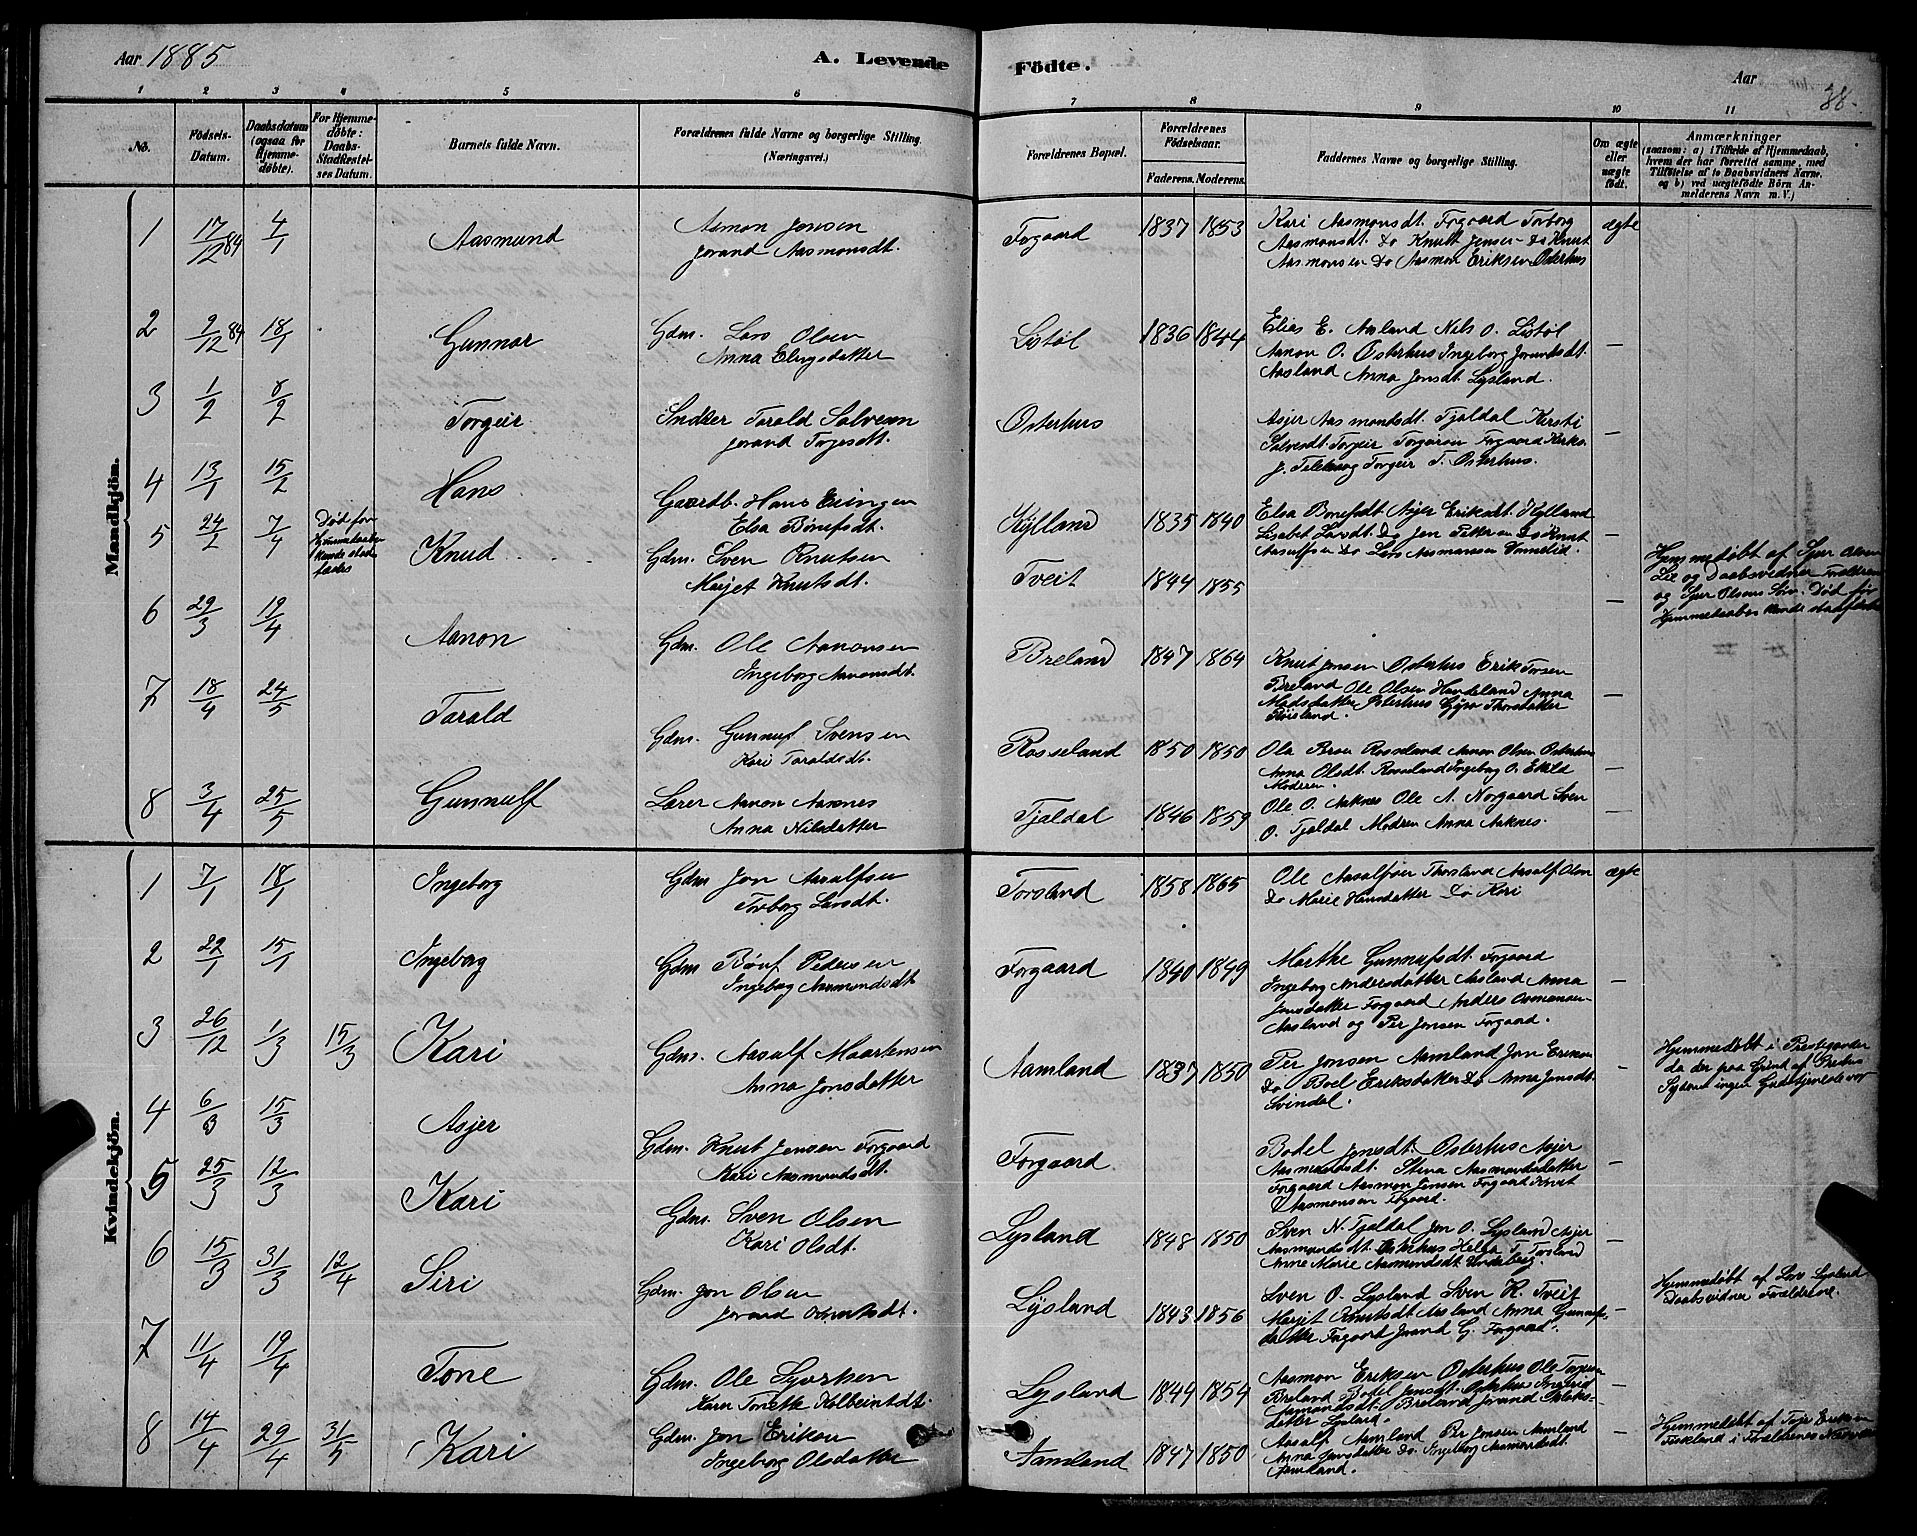 Aar 1885
A. Levende
Födte.
Aar
38.
1 2 3 4 5 6 7 8 9 10 11
No.
Födsels-
Datum.
Daabsdatum
(ogsaa for
Hjemme-
döbte).
For Hjemme-
döbte:
Daabs-
Stadfæstel-
ses Datum.
Barnets fulde Navn.
Forældrenes fulde Navne og borgerlige Stilling.
(Næringsvei.)
Forældrenes Bopæl.
Forældrenes
Födselsaar.
Faderens. Moderens.
Faddernes Navne og borgerlige Stilling.
Om ægte
eller
uægte
födt.
Anmærkninger
(saasom: a) i Tilfælde af Hjemmedaab,
hvem der har forrettet samme, med
Tilföielse af to Daabsvidners Navne.
og b) ved uægtefödte Börn An-
melderens Navn m. V.)
Mandkjön.
1 17/12 84 4/1 Aasmund
Asmon Jensen
Jorand Aasmonsdt.
Forgaard 1837 1853
Kari Aasmonsdt. Forgaard Torborg
Aasmonsdt. Do Knutt Jensen Do Knut
Aasmonsen Do Aasmon Eriksen Osterhus
ægte
2 9/12 84 18/1 Gunnar
Gdm. Lars Olsen
Anna Elingsdatter
Listøl 1836 1844
Elias E. Aasland Nils O. Listøl
Aanon O. Osterhus Ingeborg Jorundsdt.
Aasland Anna Jonsdt. Lysland.
—
3 1/2 8/2 Torgeir
Snedker Tarald Salvesen
Jorand Torjesdt.
Osterhus
Asjer Aasmondsdt. Tjaldal Kirsti
Salvesdt. Torgeir Torgeirsen Forgaard
Torgeir T. Osterhus.
—
4 13/1 15/2 Hans
Gaardb. Hans Elingsen
Elsa Bonefsdt.
Kylland 1835 1840
Elsa Bonefsdt Asjer Eriksdt. Kylland
Lisabet Larsdt. Do Jon Pettersen Do Knut
Aasulfsen Do Lars Aasmonsen
—
5 24/2 7/4 Død før
Hjemmedaaben
kunde stad-
fæstes
Knud
Gdm. Sven Knutsen
Marjet Knutsdt.
Tveit 1844 1855
—
Hjemmedøbt af Sjur Olsen
Lie og Daabsvidner Forældrene
og Sjur Olsens Søn. Død før
Hjemmedaaben kunde stadfæstes
6 29/3 19/4 Aanon
Gdm. Ole Aanonsen
Ingeborg Aanonsdt.
Breland 1847 1864
Knut Jensen Osterhus Erik Torsen
Breland Ole Olsen Handeland Anna
Madsdatter Osterhus Gyro Thorsdatter
Røisland.
—
7 18/4 24/5 Tarald
Gdm. Gunnuf Svensen
Kari Taraldsdt.
Rosseland 1850 1850
Ola Rosseland Aanon Olsen Osterhus
Anna Olsdt. Rosseland Ingebog O. Ekeld
Moderen.
—
8 3/4 25/5 Gunnulf
Lærer Aanon Aaknes
Anna Nilsdatter
Tjaldal 1846 1859
Ole O. Aaknes Ole A. Norgaard Sven
O. Tjaldal Modren Anna Aaknes.
—
Kvindekjön.
1 7/1 18/1 Ingeborg
Gdm Jon Aasulfsen
Torborg Larsdt.
Torsland 1858 1865
Ole Aasulfsen Thorsland Aasulf Olsen
Do Marie Hansdatter Do Kari
ægte
2 22/1 15/1 Ingeborg
Gdm Bonf Pedersen
Ingeborg Aasmondsdt
Forgaard 1840 1849
Marthe Gunnufsdt. Forgaard
Ingeborg Andersdatter Aasland Anna
Jonsdatter Forgaard Anders Osmonsen
Aasland og Per Jonsen Forgaard.
—
3 26/12 1/3 15/3 Kari
Gdm. Aasulf Maartensen
Anna Jonsdatter
Aamland 1837 1850
Per Jonsen Aamland Jon Eriksen
Do Boel Eriksdatter Do Anna Jonsdt.
Svindal.
—
Hjemmedøbt i Præstegaarden
da der paa Grund af Præstens
Sygdom ingen Gudstjeneste var
4 6/3 15/3 Asjer
Gdm. Knut Jensen Forgaard
Kari Aasmondsdt.
Forgaard
Bodel Jonsdt. Osterhus Asjer
Aasmundsdt. Stina Aasmondsdatter
Forgaard Aasmon Jensen Forgaard Knut
Aasmonsen Forgaard.
—
5 25/3 12/3 Kari
Gdm. Sven Olsen
Kari Olsdt.
Lysland 1848 1850
Sven N. Tjaldal Jon O. Lysland Asjer
Aasmundsdt. Osterhus Helga Torsland
Anne Marie Aasmundsdt.
—
6 15/3 31/3 12/4 Siri
Gdm. Jon Olsen
Jorand
Lysland 1843 1856
Sven O. Lysland Sven K. Tveit
Marjet Knutsdt Aasland Anna Gunnufs-
datter Forgaard Jorand G. Forgaard.
—
Hjemmedøbt af Lars Lysland
Daabsvidner Forældrene.
7 11/4 19/4 Tone
Gdm. Ole Syvertsen
Karen Tonette Kolbeinsdt.
Lysland 1844 1854
Aasmon Eriksen Osterhus Ole Torgeirsen
Breland Bodel Jensdt. Osterhus Ingrid
Aamondsdt. Breland Jorand
datter Lysland.
—
8 14/4 29/4 31/5 Kari
Gdm. Jon Eriksen
Ingeborg Olsdatter
Aamland 1847 1850
Aasulf Aamland Per Jonsen Aamland
Anna Jonsdatter Do. Ingeborg Aasmondsdt.
Aamland.
—
Hjemmedøbt af Torje Eriksen
Fiskland i Forældrenes Nærvær